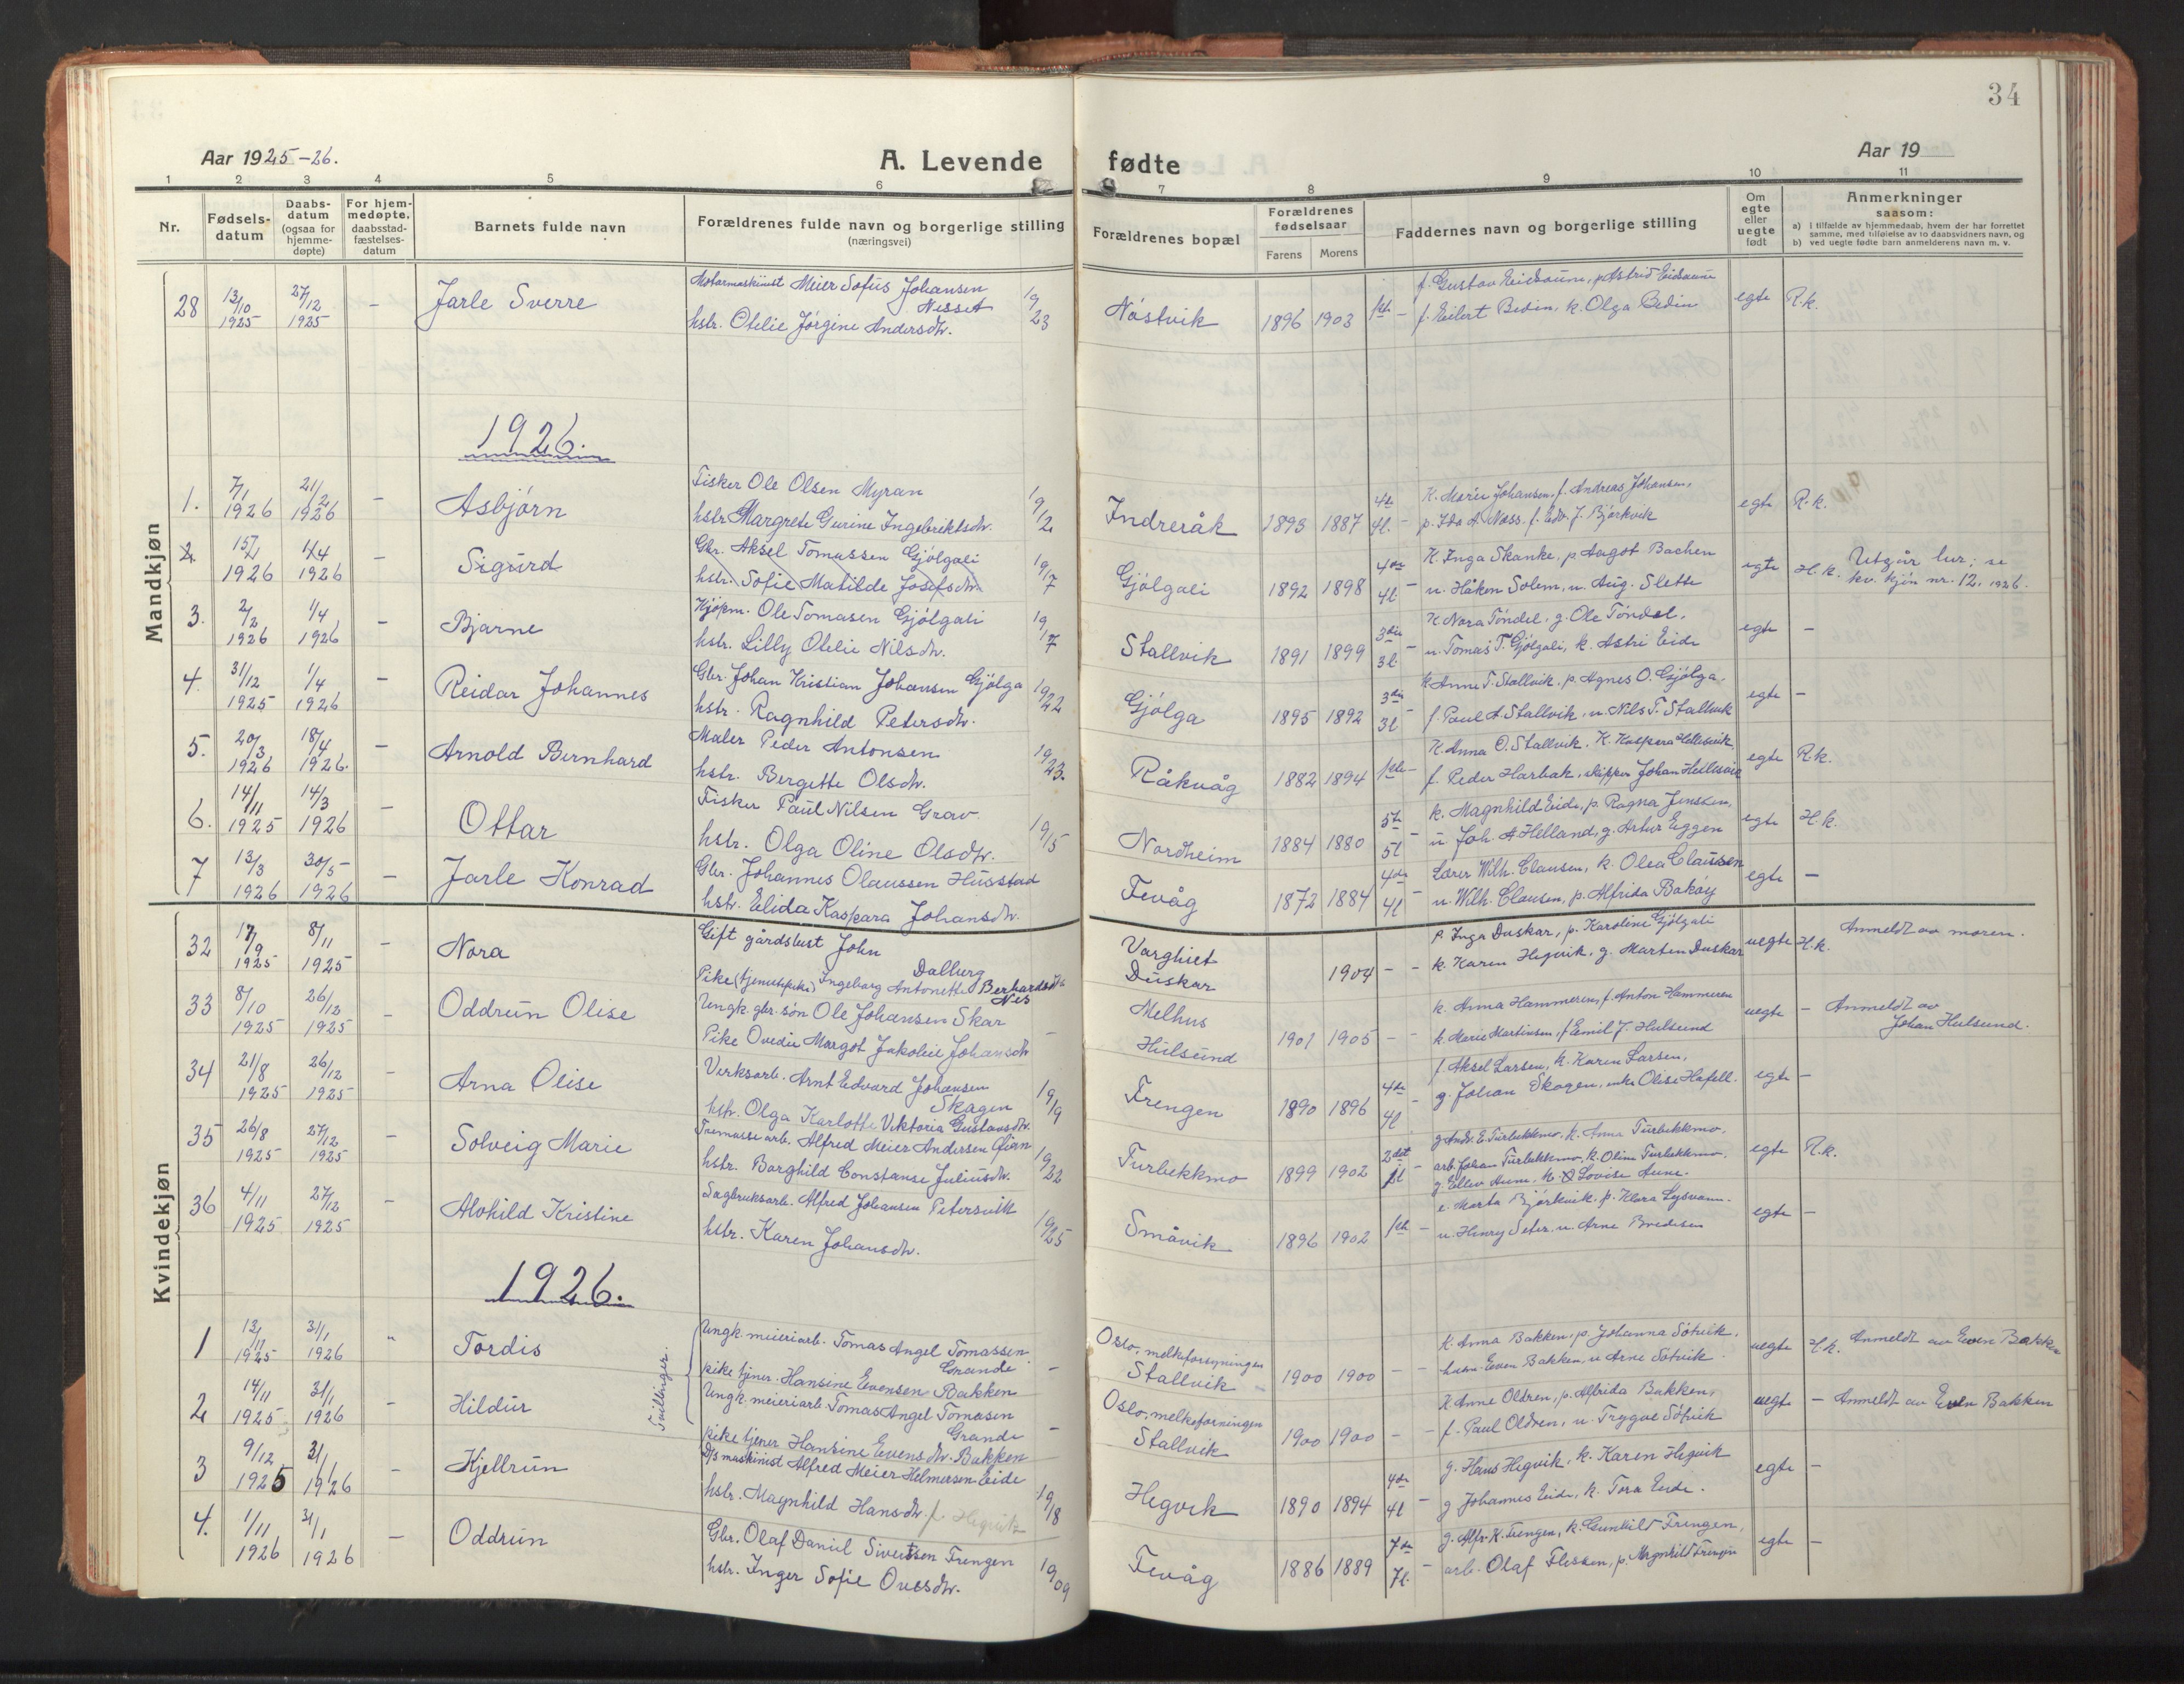 34
Aar 1925-26.
A. Levende fødte
Aar 19
1 2 3 4 5 6 7 8 9 10 11
Nr.
Fødselsdatum
Daabsdatum (ogsaa for hjemmedøpte)
For hjemmedøpte, daabsstadfæstelsesdatum
Barnets fulde navn
Forældrenes fulde navn og borgerlige stilling
(næringsvei)
Forældrenes bopæl
Forældrenes fødselsaar
Farens Morens
Faddernes navn og borgerlige stilling
Om egte eller uegte født
Anmerkninger
saasom:
a) i tilfælde av hjemmedaab, hvem der har forrettet samme, med tilføielse av to daabsvidners navn, og
b) ved uegte fødte barn anmelderens navn m. v.
Mandkjøn
28 13/10 1925 27/12 1925 - Jarle Sverre
Motormaskinist Meier Sofus Johansen Nesset
hstr. Otelie Jørgine Andersdtr. 19/23
Nøstvik 1896 1903 1ste -
f. Gustav Eidsaune, p. Astrid Eidsaune
f. Eilert Bedin, k. Olga Bedin
egte R.k.
1926.
1. 7/1 1926 21/2 1926 - Asbjørn
Fisker Ole Olsen Myran
hstr Margrete Gurine Ingebriktsdtr. 19/12
Indreråk 1893 1887 4de 4l. -
K. Marie Johansen, f. Andreas Johansen,
p. Ida A. Næss. f. Edv. J. Bjørkvik
egte R.k.
2 15/1 1926 1/4 1926 - Sigurd
Gbr. Aksel Tomassen Gjølgali
hstr. Sofie Matilde Josefsdtr. 19/17
Gjølgali 1892 1898 4de 4l -
K. Inga Skanke, p Aagot Bachen
u. Håken Solem, u. Aug. Slette
egte H.k.
Utgår her; se
kv. kjøn nr. 12. 1926.
3. 2/2 1926 1/4 1926 - Bjarne
Kjøpm. Ole Tomasen Gjølgali
hstr. Lilly Otelie Nilsdtr. 19/17
Stallvik 1891 1899 3die 3l -
K Nora Tøndel, g. Ole Tøndel,
u. Tomas T. Gjølgali, k. Astri Eide
egte -
4. 31/12 1925 1/4 1926 - Reidar Johannes
Gbr. Johan Kristian Johansen Gjølga
hstr. Ragnhild Petersdtr. 19/22
Gjølga 1895 1892 3die 3l -
k Anne T. Stallvik, p. Agnes O. Gjølga,
f. Paul A. Stallvik, u. Nils T. Stallvik
egte -
5. 20/3 1926 18/4 1926. - Arnold Bernhard
Maler Peder Antonsen
hstr. Bergette Olsdtr. 19/23.
Råkvåg 1882 1894 1ste -
K. Anna O. Stallvik, K. Kaspara Hellesvik,
f. Peder Harbak, skipper Johan Hellesvik
egte R.k.
6. 14/11 1925 14/3 1926 - Ottar
Fisker Paul Nilsen Grav
hstr. Olga Oline Olsdtr. 19/15
Nordheim 1884 1880 5te 5l -
k. Magnhild Eide, p. Ragna Jenssen,
u Joh. A Helland, g. Artur Eggen
egte H.k.
7 13/3 1926 30/5 1926 - Jarle Konrad
Gbr. Johannes Olaussen Husstad
hstr. Elida Kaspara Johansdtr.
Fevåg 1872 1884 4de 4l -
Lærer Wilh. Clausen, k. Olea Claussen
u. Wilh. Clausen, p. Alfrida Bakøy
egte -
Kvindekjøn
32 17/9 1925 8/11 1925 - Nora
Gift gårdsbest John Dalberg
Pike (tjenestepike) Ingeborg Antonette Berhardsdtr Nes
Varghiet
Duskar 1904 - -
p. Inga Duskar, p. Karoline Gjølgali
k. Karen Hegvik, g. Marten Duskar
uegte H.k.
Anmeldt av moren.
33 8/10 1925 26/12 1925 - Oddrun Olise
Ungk. gbr. søn Ole Johansen Skar
Pike Ovedie Margot Jakobie Johansdtr -
Melhus
Hulsund 1901 1905 - -
k. Anna Hammeren, f. Anton Hammeren
k. Marie Martinsen, f Emil J. Hulsund
uegte -
Anmeldt av
Johan Hulsund.
34 21/8 1925 26/12 1925 - Arna Olise
Verksarb. Arnt Edvard Johansen Skagen
hstr. Olga Karlotte Viktoria Gustavsdtr. 19/19
Frengen 1890 1896 4de 4l -
f. Aksel Larsen, k. Karen Larsen,
g. Johan Skagen, enke Olise Hafell.
egte -
35 26/8 1925 27/12 1925 - Solveig Marie
Alfred Meier Andersen Øian
hstr. Borghild Constanse Juliusdtr. 19/22
Furbekkmo 1899 1902 2det
g Andr. E. Furbekkmo, k. Anna Furbekkmo,
arb. Johan Furbekkmo, k. Oline Furbekkmo,
g. Ellev Aune, k. Lovise Aune.
egte R.k.
36 4/11 1925 27/12 1925 - Alvhild Kristine
Sagbruksarb. Alfred Johansen Petersvik
hstr. Karen Johansdtr. 19/25
Småvik 1896 1902 1ste -
e. Marta Bjørkvik, p. Klara Lysvann.
u. Henry Seter, u. Arne Bredesen
egte -
1926.
Tvillinger.
1 13/11 1925 31/1 1926 " Tordis
Ungk. meieriarb. Tomas Angel Tomassen Grande
pike tjener. Hansine Evensen Bakken -
Oslo, melkeforsyningen
Stallvik 1900 1900 - -
K. Anna Bakken, p. Johanna Søtvik,
husm. Even Bakken, u Arne Søtvik.
uegte H.k.
Anmeldt av Even Bakken
2 14/11 1925 31/1 1926 - Hildur
Ungk. meieriarb. Tomas Angel Tomasen Grande
pike tjener Hansine Evensdtr. Bakken -
Oslo, melkeforningen
Stallvik 1900 1900 - -
K Anne Oldren, p. Alfrida Bakken,
f. Paul Oldren, u. Trygve Søtvik
uegte - Anmeldt av Even Bakken
3 9/12 1925 31/1 1926 - Kjellrun
D/S maskinist Alfred Meier Helmersen Eide
hstr. Magnhild Hansdtr. f. Hegvik 19/18
Hegvik 1890 1894 4de 4l -
g. Hans Hegvik, k. Karen Hegvik
g Johannes Eide, k. Tora Eide.
egte -
4. 1/11 1926 31/1 1926 - Oddrun
Gbr. Olaf Daniel Sivertsen Frengen
hstr. Inger Sofie Ovesdtr. 19/09
Fevåg 1886 1889 7de 7l. -
g. Alfr. K. Frengen, k. Gunhild Frengen,
arb. Olaf Flessen, p. Magnhild Frengen
egte -